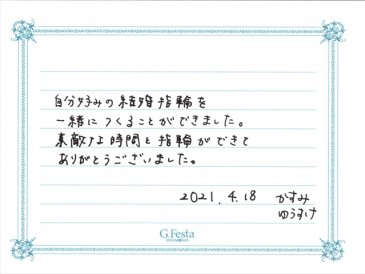 自分好みの結婚指輪を
一緒につくることができました。
素敵な時間と指輪ができて
ありがとうございました。
2021.4.18 かすみ
ゆうすけ
G.Festa